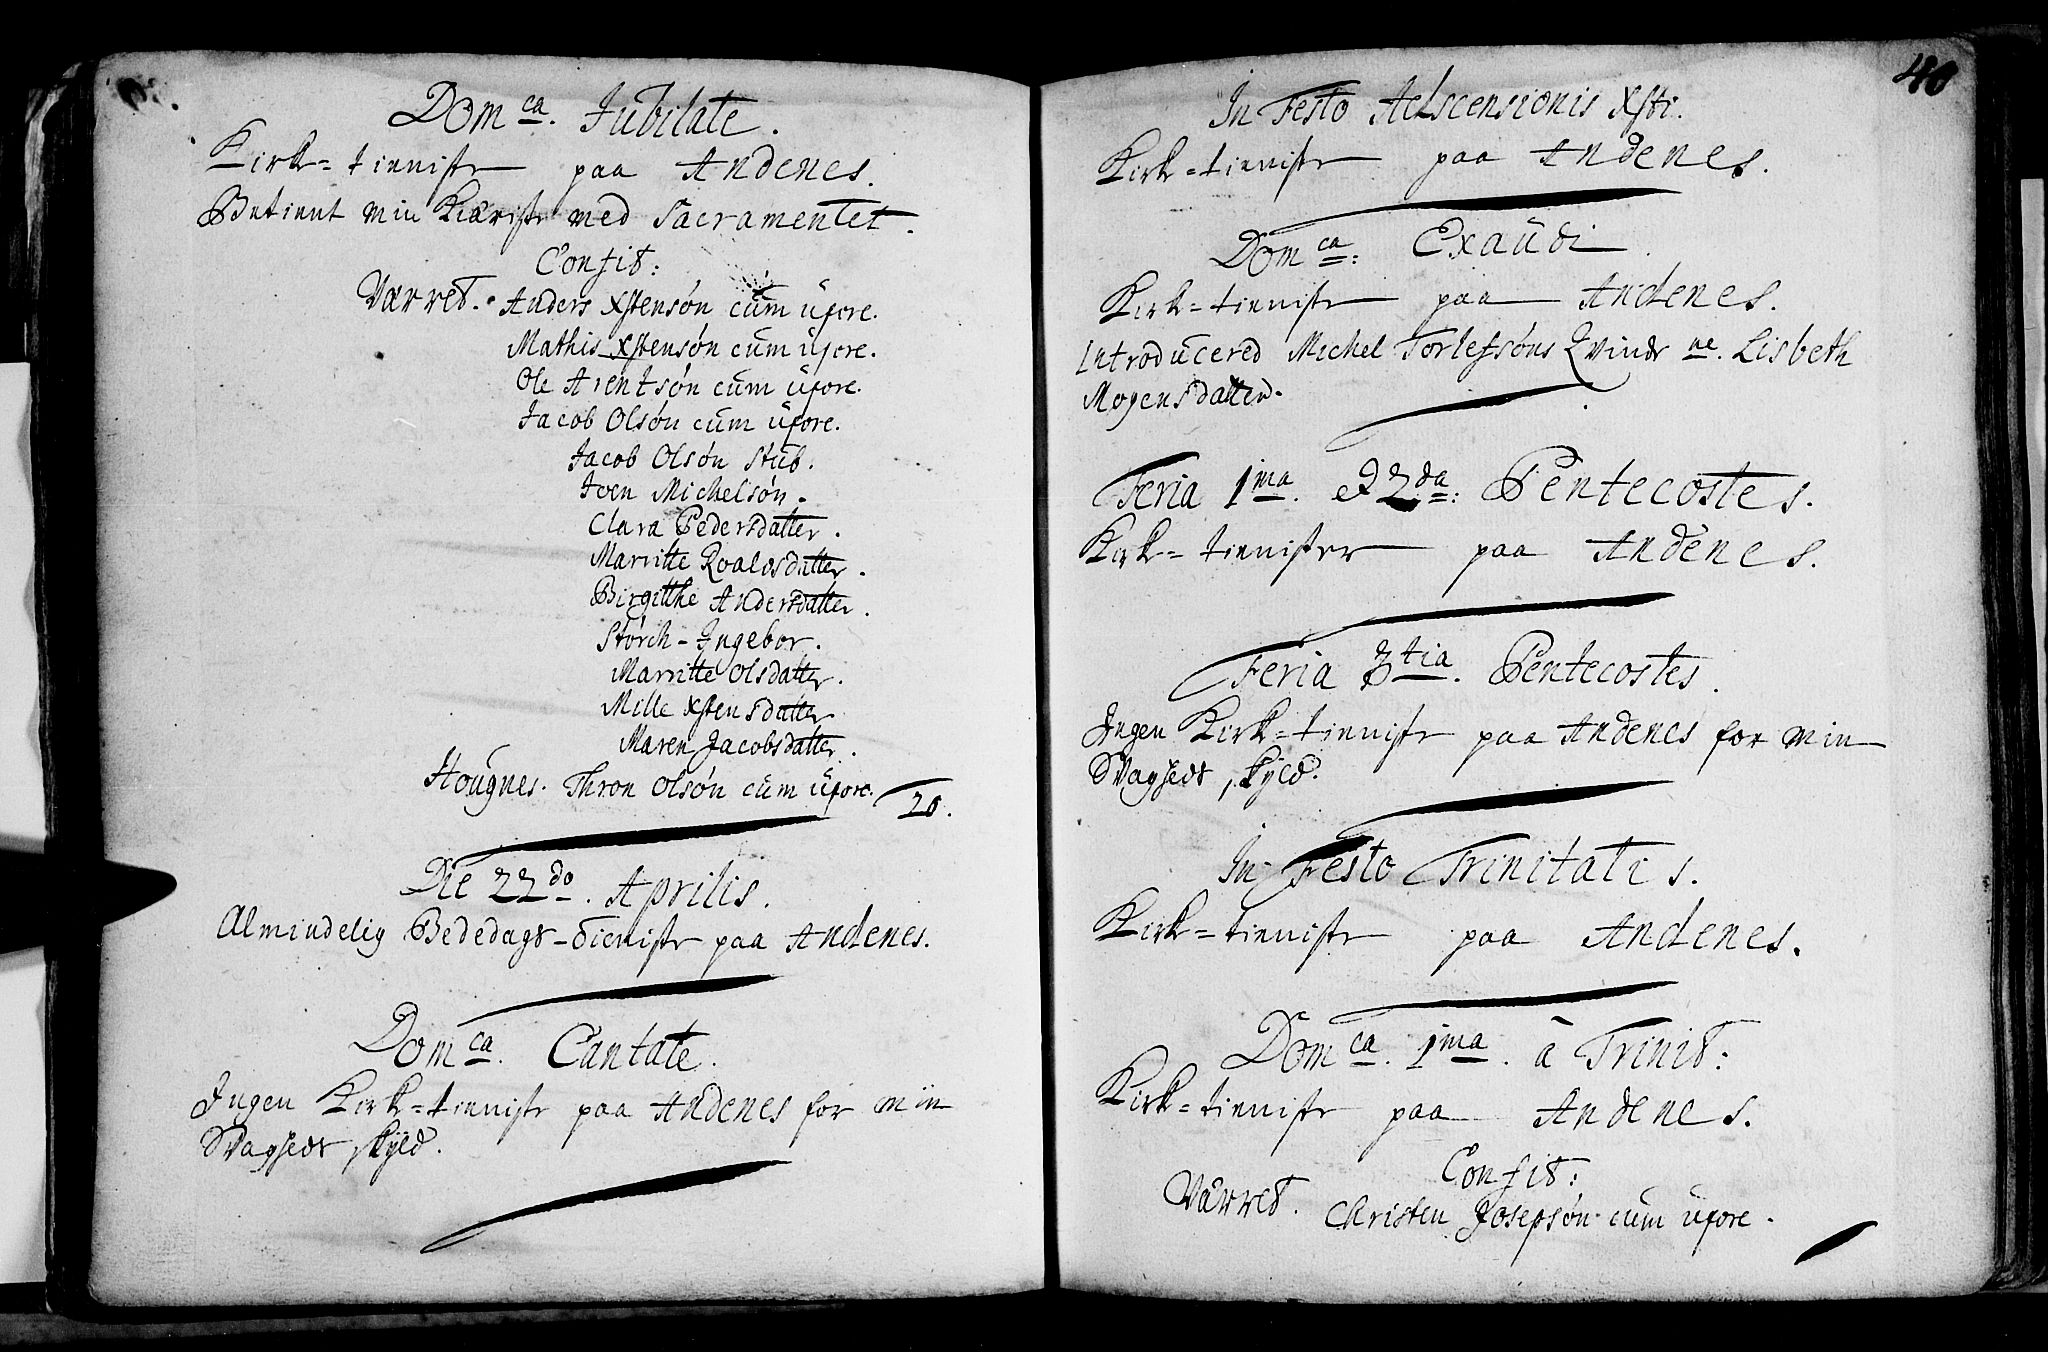 Dom ca. Jubilate.
Kirk-tieniste paa Andenes.
Betient min Kiæriste med Sacramentet.
Confit:
Værret. Anders Xstensøn cum uxore.
Mathis Xstensøn cum uxore.
Ole Arentsøn cum uxore.
Jacob Olsøn cum uxore.
Jacob Olsøn Stub.
Joen Michelsøn.
Clara Pedersdatter.
Marritte Roaldsdatter.
Birgitthe Andersdatter.
Storch-Ingebor.
Marritte Olsdatter.
Mille Xstensdatter
Maren Jacobsdatter.
Hougnes. Thron Olsøn cum uxore. 20.
Die 22do. Aprilis.
Almindelig Bededags-Tieniste paa Andenes.
Dom ca. Cantate.
Ingen Kirk-tieniste paa Andenes for min
Svagheds skyld.
40
In Festo Adscensionis Xsti.
Kirk-tieniste paa Andenes.
Dom ca: Exaudi.
Kirk-tieniste paa Andenes.
Introducered Michel Torlefsøns Qvinde ne. Lisbeth
Mogensdatter.
Feria 1ma. et 2da: Pentecostes.
Kirk-tienister paa Andenes.
Feria 3tia. Pentecostes.
Ingen Kirk-tieniste paa Andenes for min
Svagheds skyld.
In Festo Trinitatis.
Kirk-tieniste paa Andenes.
Dom ca. 1ma. à Trinit:
Kirk-tieniste paa Andenes.
Confit:
Værret. Christen Josepsøn cum uxore.